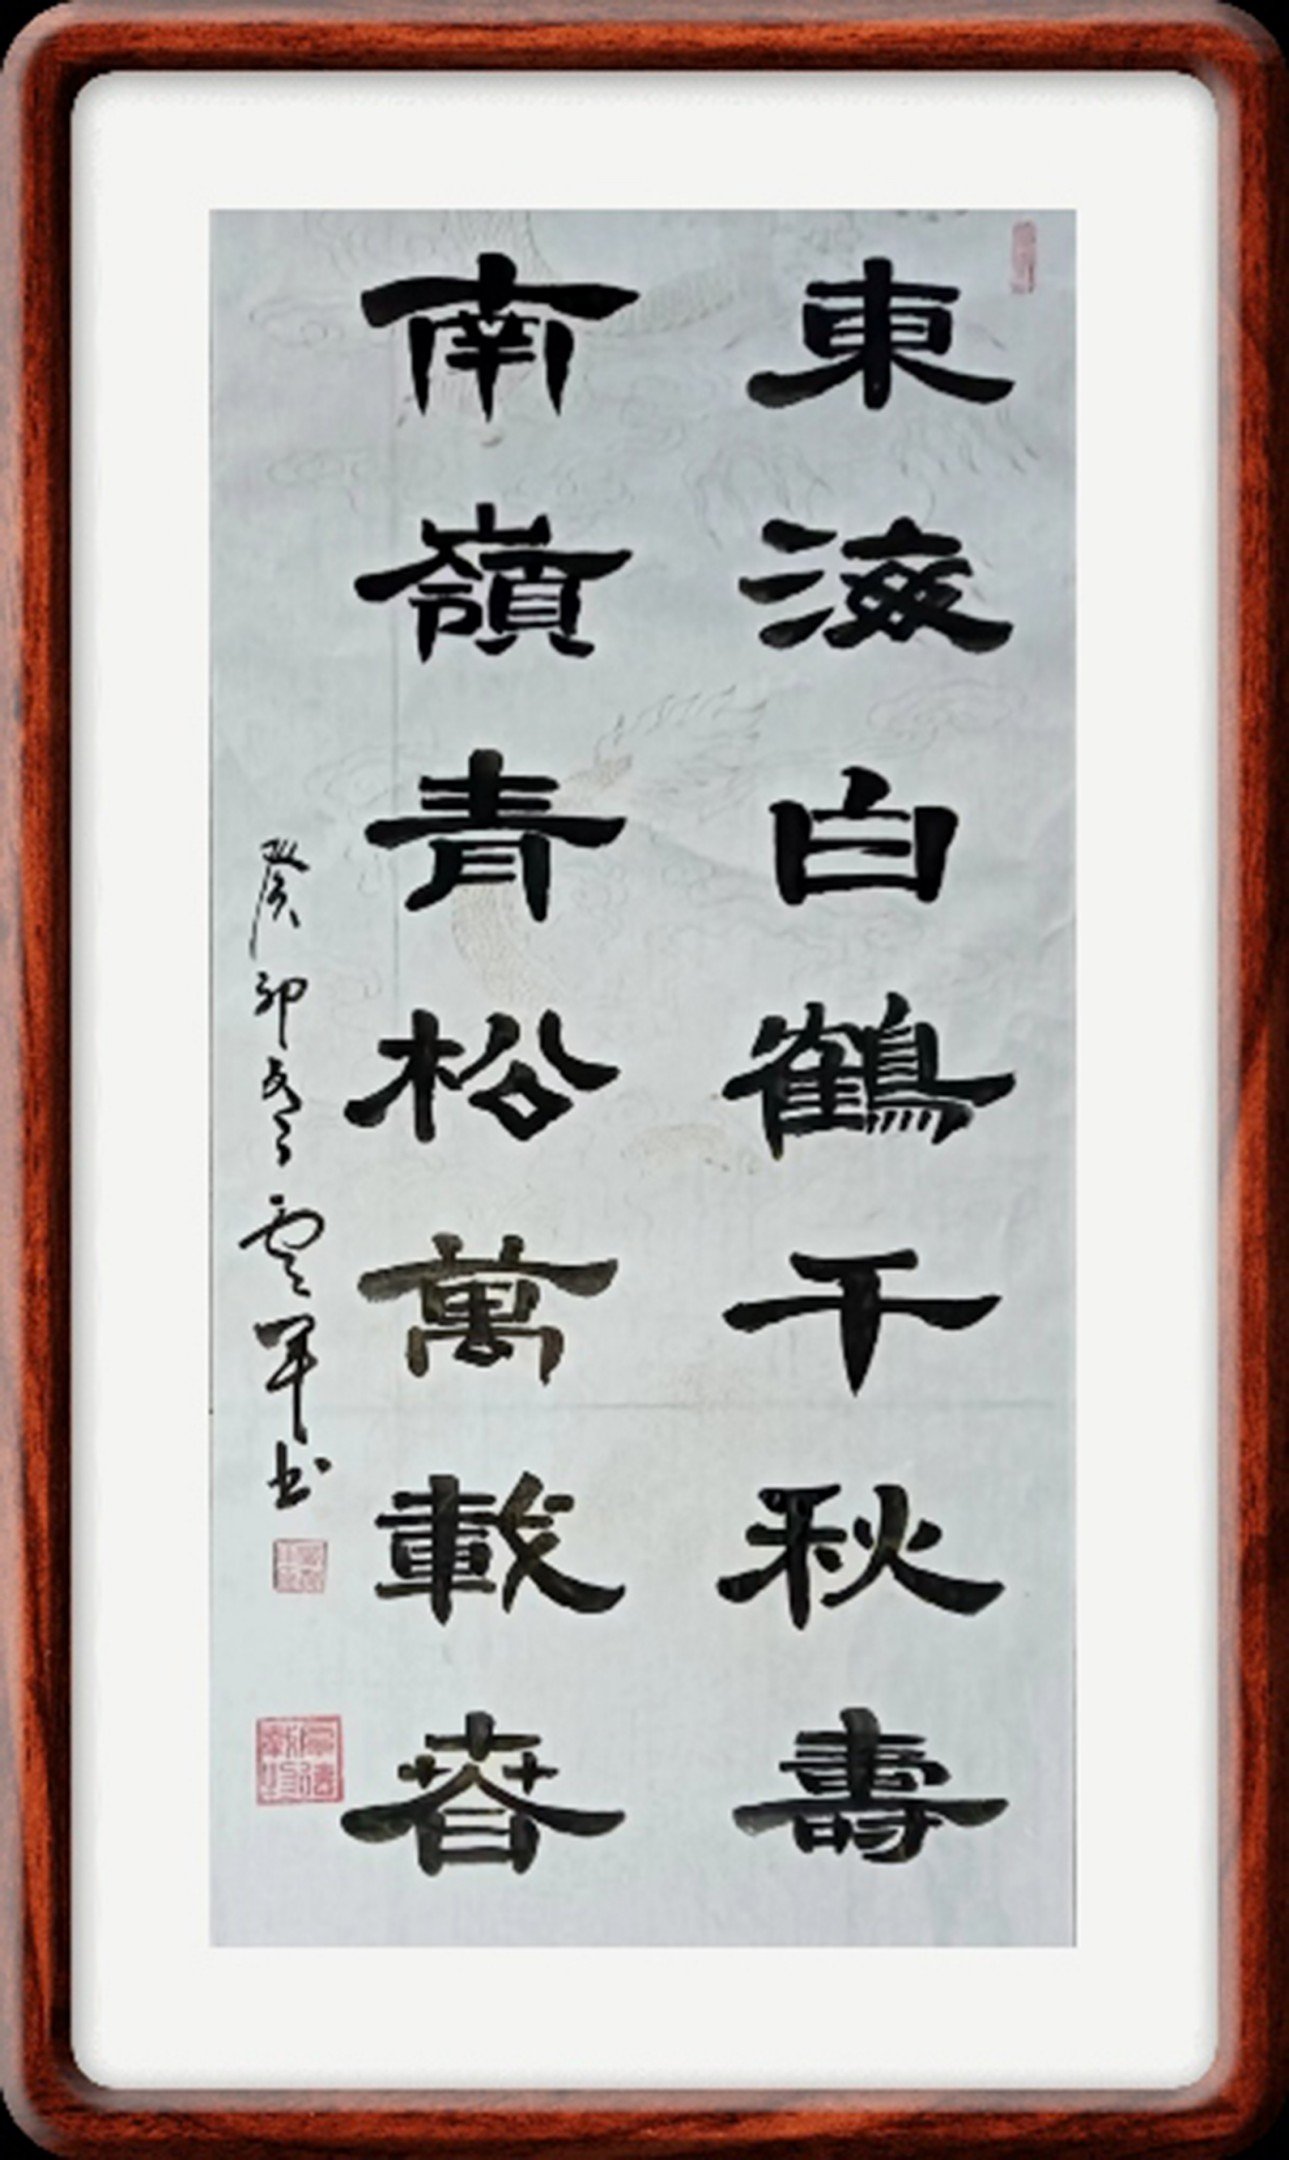 東海白鶴千秋壽
南嶺青松萬載春
癸卯冬雲軍书